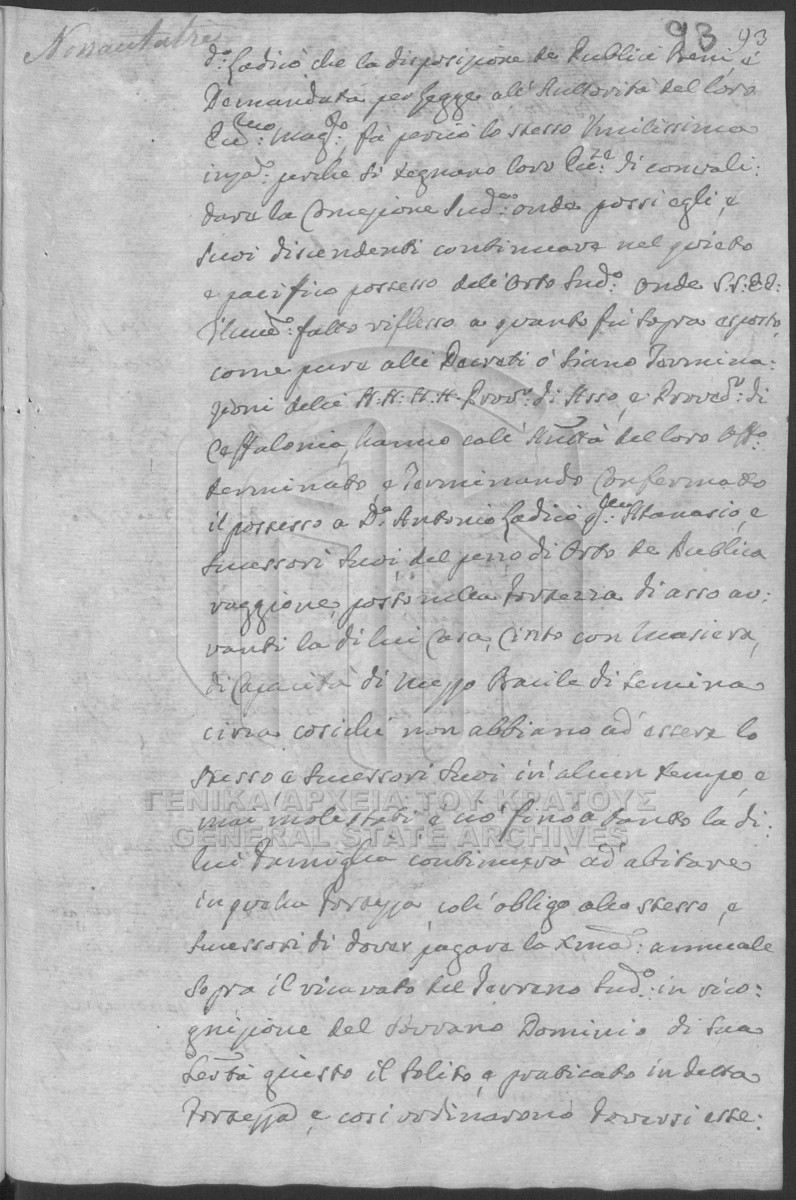 93 93
Nonantatre
d.º Ladicò che la disposizione de Publici Beni, è
Demandata per Legge all'Auttorità del loro
Ecc.mo Mag.to, fà perciò lo stesso Umilissima
inst.: perche si degnano loro Ecc.ze di convali:
dare la Concessione Sud.a onde possi egli, e
Suoi discendenti continuare nel quieto
e pacifico possesso dell'Orto Sud.º Onde S.S: E.E:
fatto riflesso a quanto fù sopra esposto,
come pure alli Decreti ò Siano Termina:
zioni delli N.N: H.H. Prov.r di Asso, e Proved.r di
Ceffalonia, hanno coll'Autt.à del loro Off.º
terminato, e Terminando Confermato
il possesso a D.º Antonio Ladicò q.m Atanasio, e
Sucessori Suoi, del pezzo di Orto de Publica
raggione, posto nella Fortezza di asso av:
vanti la di lui Casa, Cinto con Masiera,
di Capacità di Mezzo Bacile di Semina
circa, cosiche non abbiano ad essere lo
stesso e Sucessori Suoi in alcun tempo, e
mai molestati e ciò fino a tanto la di
lui Famiglia continuerà ad abitare
in quella Fortezza, coll'obligo allo stesso, e
Sucessori di dover pagare la Xma: annuale
sopra il ricavato del Terreno Sud.º in rico:
gnizione del Sovrano Dominio di Sua
Sertà questo il Solito, e praticato in detta
Fortezza, e cosi ordinarono doversi esse:
ΓΕΝΙΚΑ ΑΡΧΕΙΑ ΤΟΥ ΚΡΑΤΟΥΣ
GENERAL STATE ARCHIVES